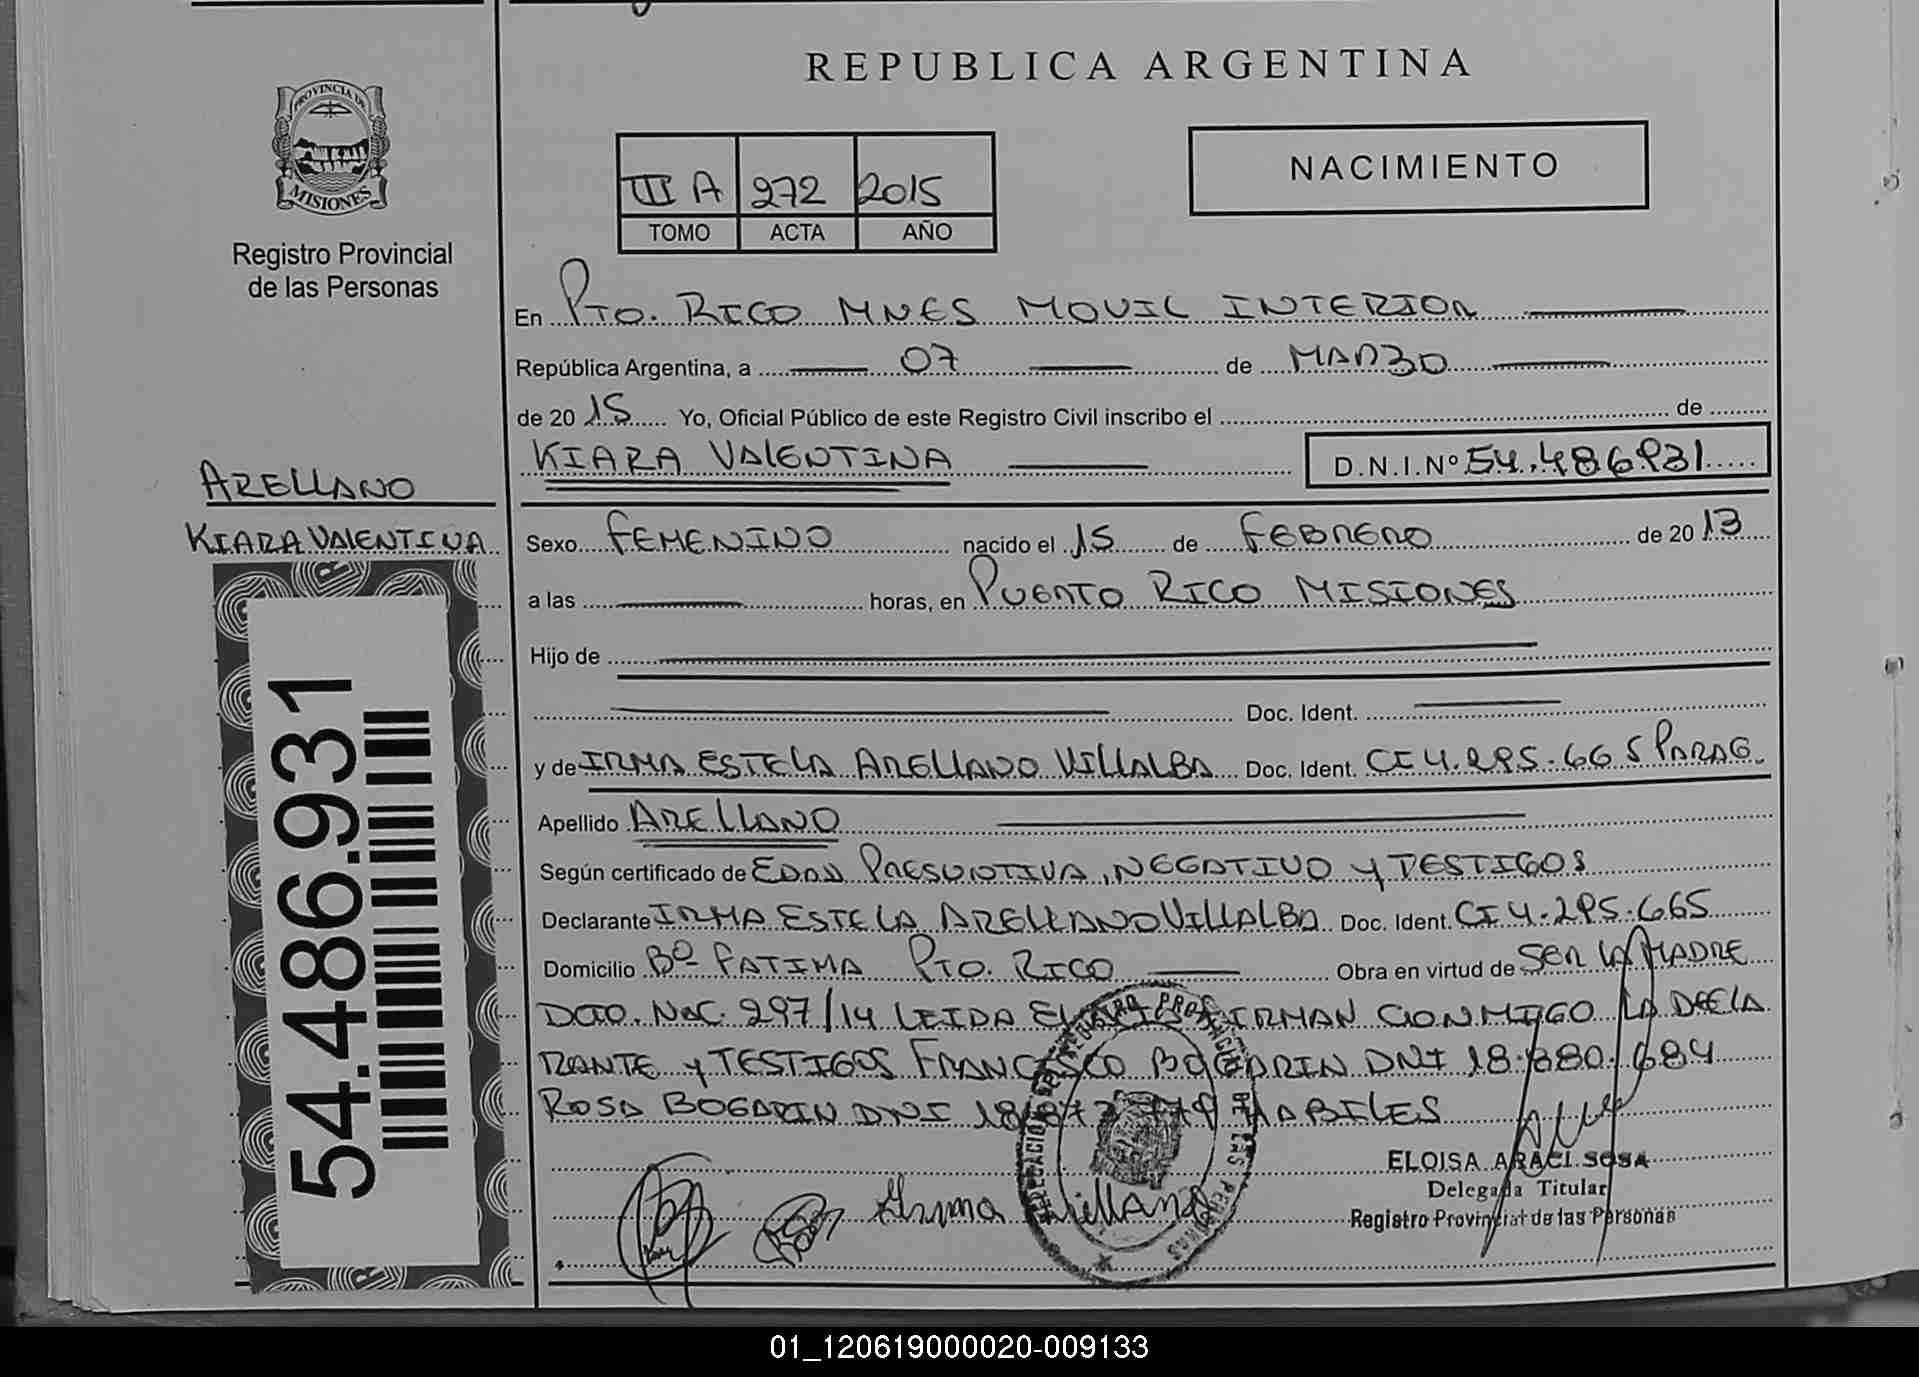 REPUBLICA ARGENTINA
PROVINCIA DE
MISIONES
Registro Provincial
de las Personas
III A 272 2015
TOMO ACTA AÑO
NACIMIENTO
En PTO. RICO MNES MOVIL INTERIOR
República Argentina, a 07 de MARZO
de 20 15 Yo, Oficial Público de este Registro Civil inscribo el de
KIARA VALENTINA D.N.I.Nº 54.486931
ARELLANO
KIARA VALENTINA
Sexo FEMENINO nacido el 15 de FEBRERO de 20 13
a las horas, en PUERTO RICO MISIONES
Hijo de
Doc. Ident.
y de IRMA ESTELA ARELLANO VILLALBA Doc. Ident. CI 4.295.665 PARAG.
Apellido ARELLANO
Según certificado de EDAD PRESUNTIVA, NEGATIVO Y TESTIGOS
Declarante IRMA ESTELA ARELLANO VILLALBA Doc. Ident. CI 4.295.665
Domicilio Bº FATIMA PTO. RICO Obra en virtud de SER LA MADRE
DCTO. NAC. 297/14 LEIDA EL FIRMAN CONMIGO LA DECLA
RANTE Y TESTIGOS FRANCISCO BOGARIN DNI 18.880.684
ROSA BOGARIN DNI HABILES
54.486.931
ELOISA ARACI SOSA
Delegada Titular
Registro Provincial de las Personas
Irma Arellano
01_120619000020-009133